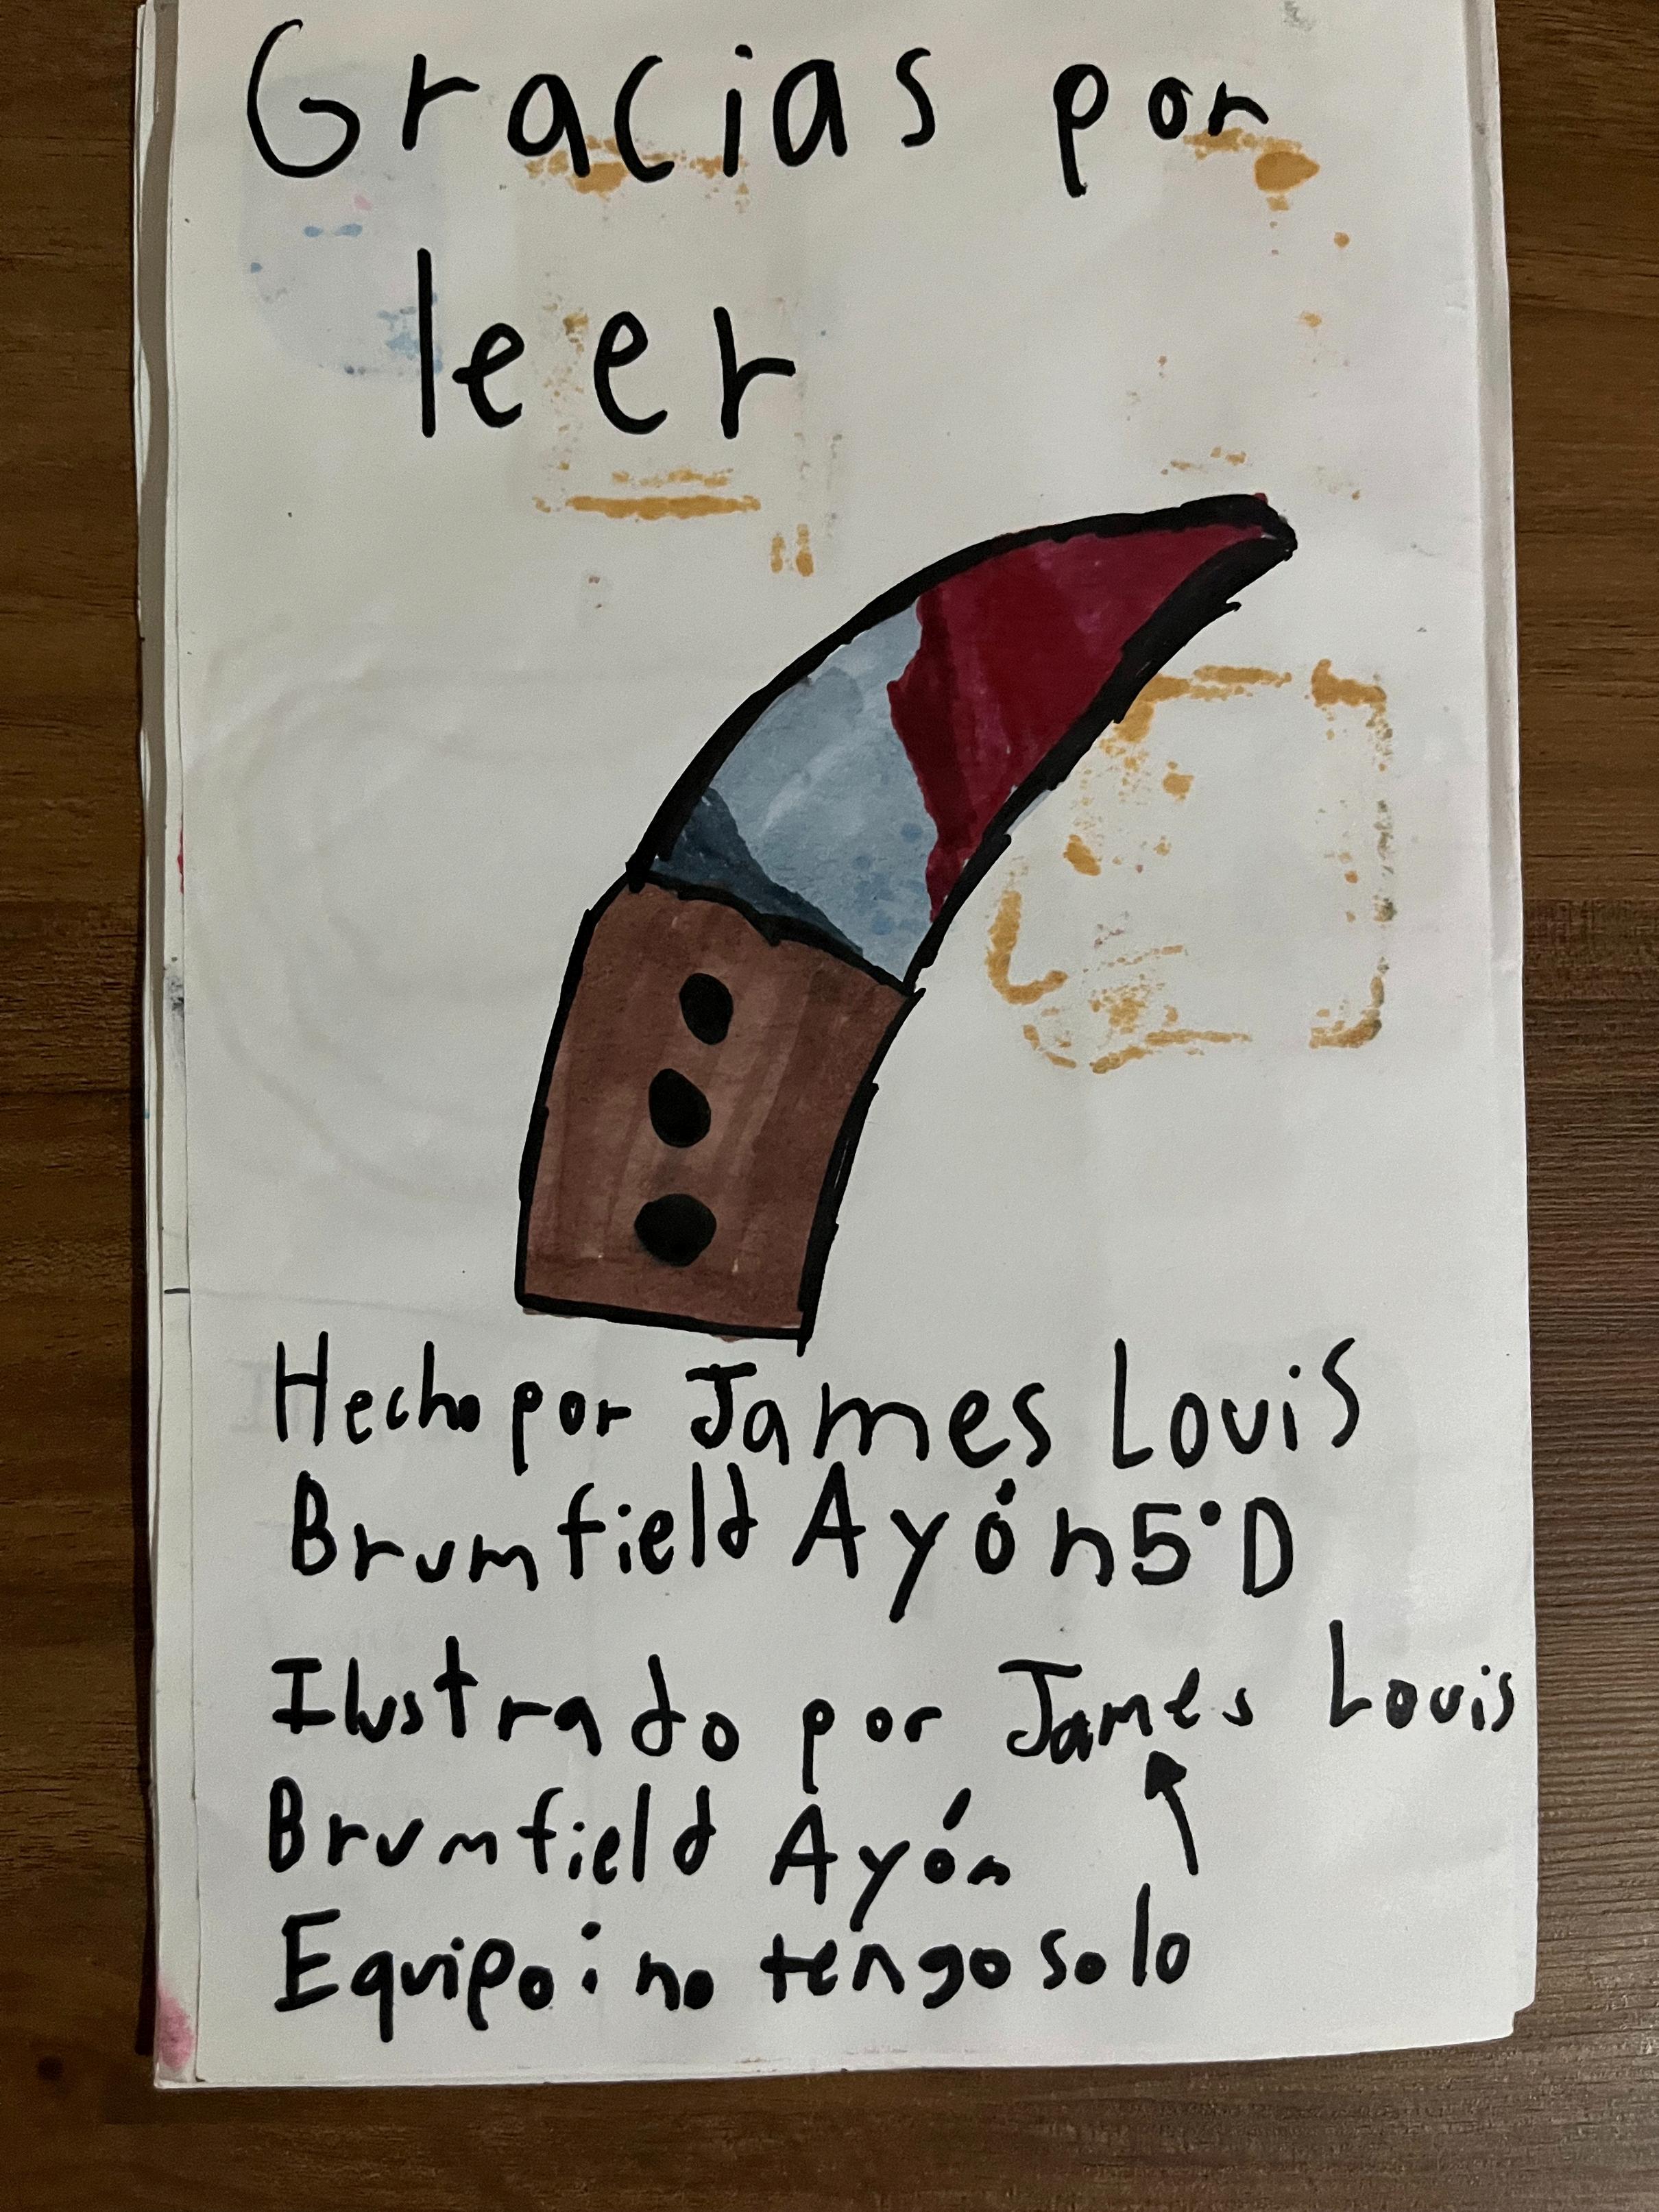 Gracias por
leer
Hecho por James Louis
Brumfield Ayón 5°D
Ilustrado por James Louis
Brumfield Ayón
Equipo: no tengo solo